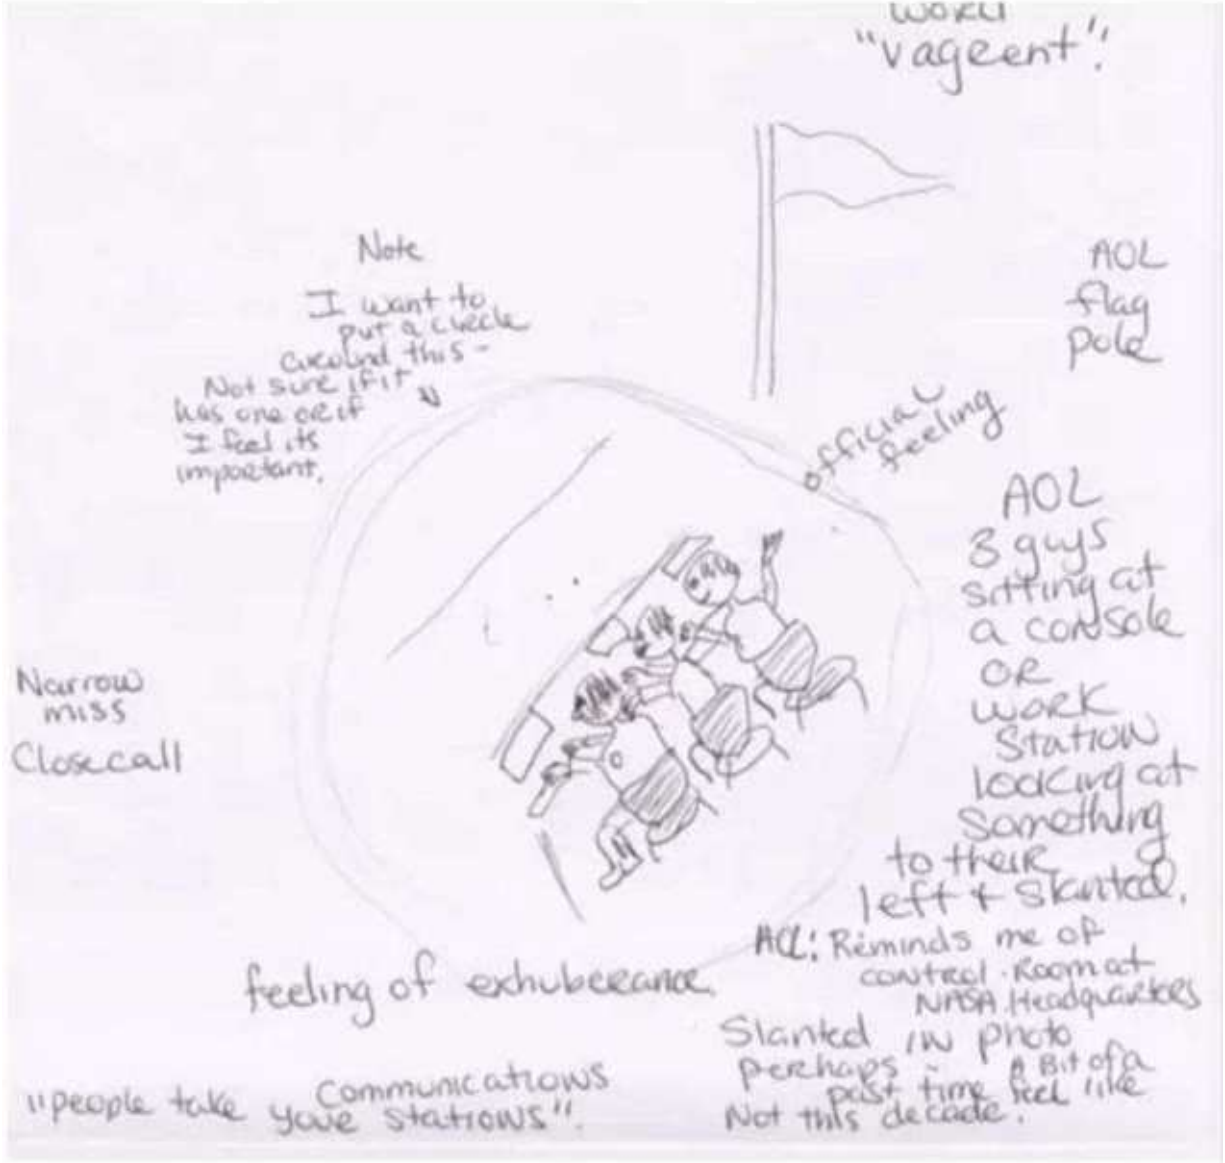 word
"vageent".
AOL
flag
pole
Note
I want to
put a circle
around this -
Not sure if it
has one or if
I feel its
important.
official
feeling
AOL
3 guys
sitting at
a console
OR
WORK
STATION
looking at
something
to their
left + slanted.
Narrow
miss
Close call
AOL: Reminds me of
control Room at
NASA Headquarters
feeling of exhuberance
Slanted in photo
perhaps - A Bit of a
past time feel like
Not this decade.
Communications
"people take your stations".